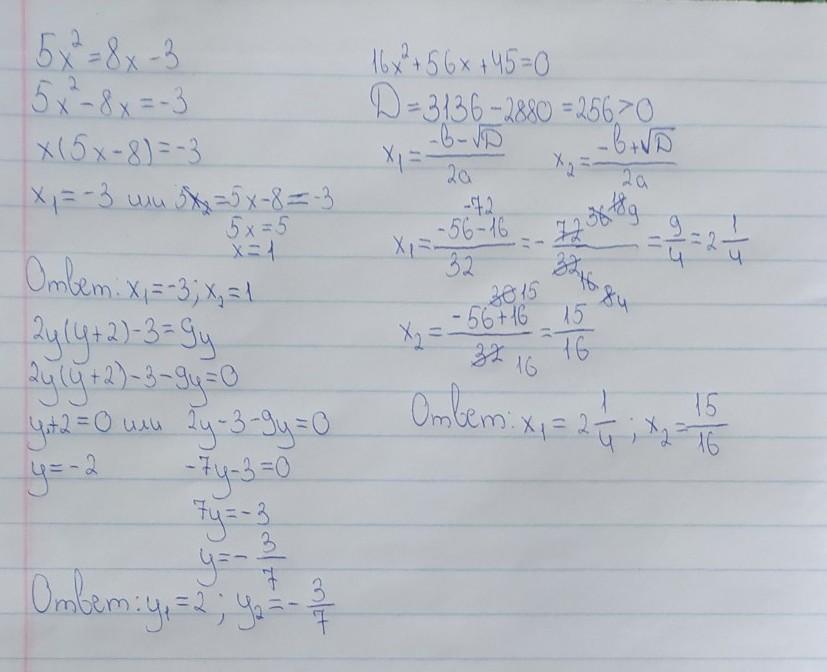 5x² = 8x - 3
5x² - 8x = -3
x(5x - 8) = -3
x₁ = -3 или 5x₂ = 5x - 8 = -3
5x = 5
x = 1
Ответ: x₁ = -3; x₂ = 1
2y(y+2) - 3 = 9y
2y(y+2) - 3 - 9y = 0
y+2 = 0 или 2y - 3 - 9y = 0
y = -2 -7y - 3 = 0
7y = -3
y = - 3/7
Ответ: y₁ = 2; y₂ = - 3/7
16x² + 56x + 45 = 0
D = 3136 - 2880 = 256 > 0
x₁ = (-b - √D)/2a x₂ = (-b + √D)/2a
-72
x₁ = (-56 - 16)/32 = - 72 36 18 9/32 16 8 4 = 9/4 = 2 1/4
30 15
x₂ = (-56 + 16)/32 16 = 15/16
Ответ: x₁ = 2 1/4; x₂ = 15/16